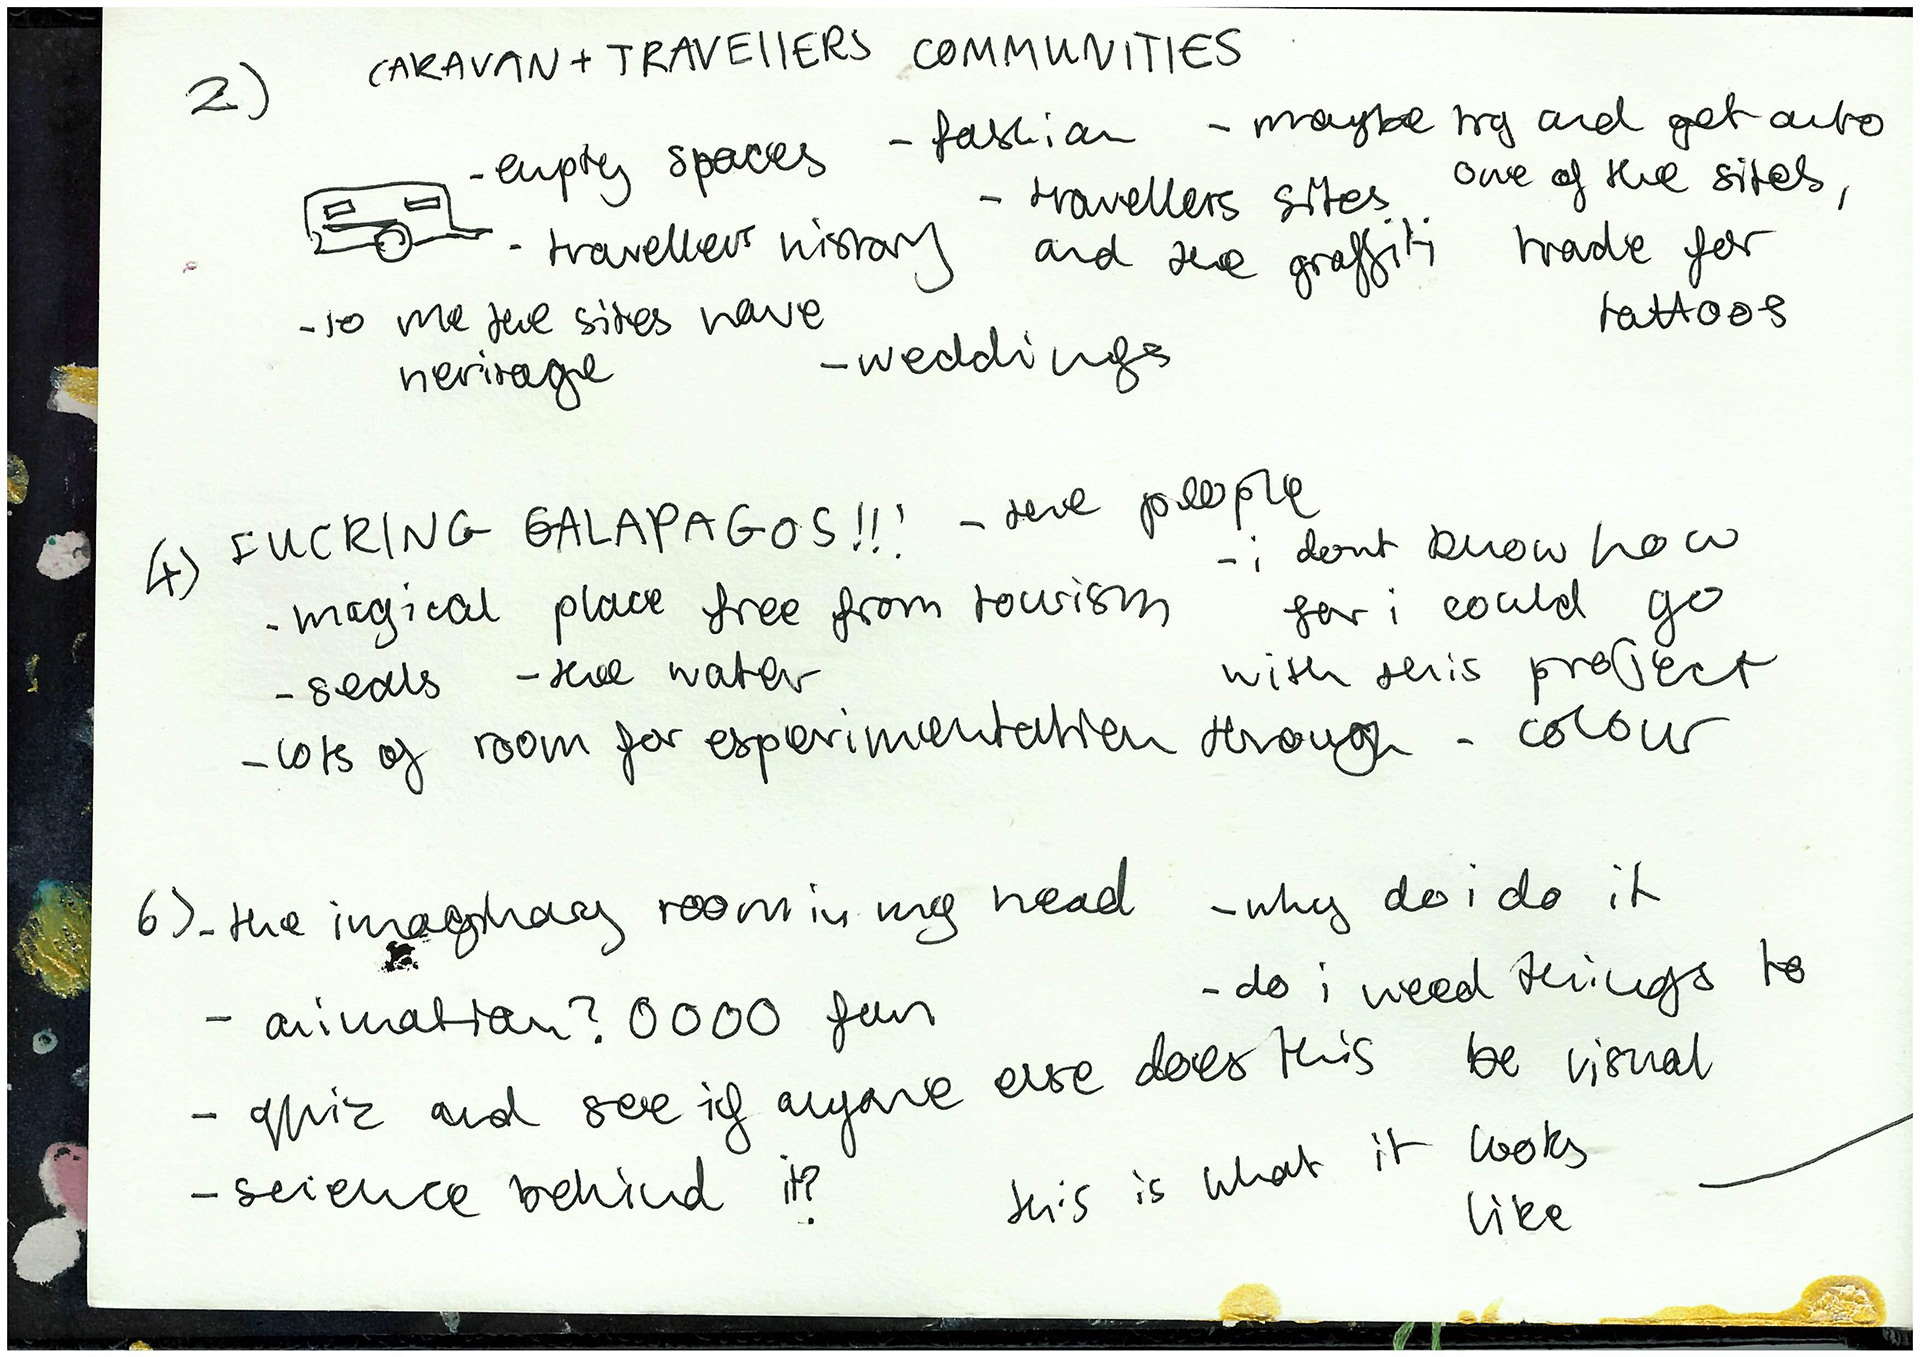 2) CARAVAN + TRAVELLERS COMMUNITIES
- empty spaces
- fashion
- maybe try and get onto
one of the sites,
trade for
tattoos
- travellers sites
and the graffiti
- travellers history
- to me the sites have
heritage
- weddings
4) FUCKING GALAPAGOS!!!
- the people
- magical place free from tourism
- i dont know how
far i could go
with this project
- seals
- the water
- lots of room for experimentation through - colour
6) - the imaginary room in my head
- why do i do it
- animation? OOOO fun
- do i need things to
be visual
- quiz and see if anyone else does this
- science behind it?
this is what it looks
like